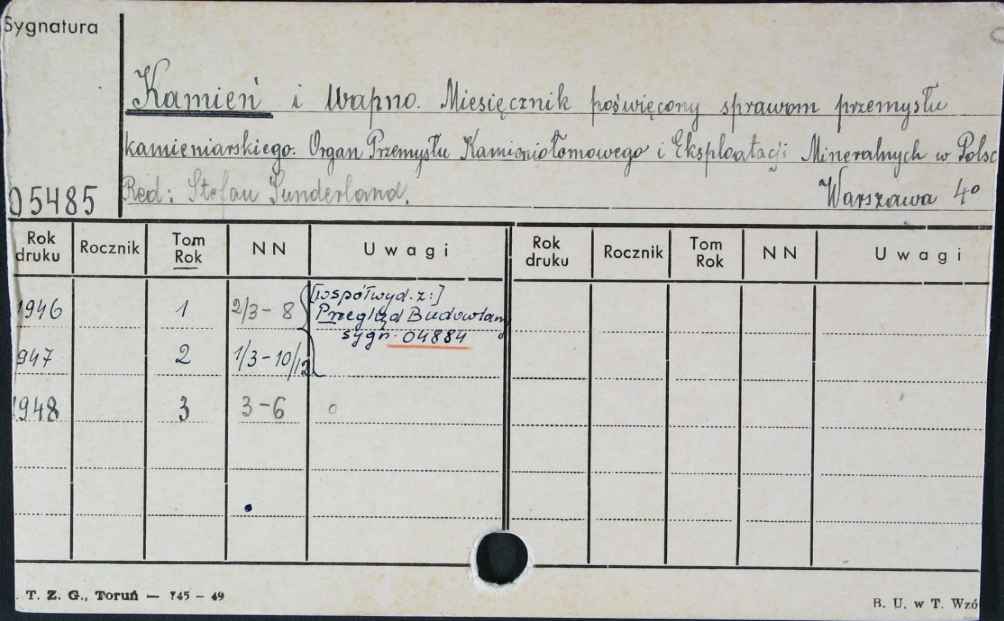 Sygnatura
Kamień i Wapno. Miesięcznik poświęcony sprawom przemysłu
kamieniarskiego. Organ Przemysłu Kamieniołomowego i Eksploatacji Mineralnych w Polsc
05485 Red: Stefan Sunderland. Warszawa 4°
Rok druku Rocznik Tom Rok NN Uwagi Rok druku Rocznik Tom Rok NN Uwagi
1946 1 2/3-8 [współwyd. z:]
Przegląd Budowlany
sygn. 04884
947 2 1/3-10/12
1948 3 3-6
. T. Z. G., Toruń — 745 - 49 B. U. w T. Wzó